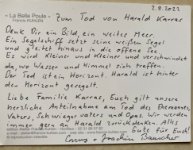 - La Belle Poule -
2.8.2022
Zum Tod von Harald Karrer
Denk Dir ein Bild, ein weites Meer.
Ein Segelschiff setzt seine weißen Segel
und gleitet hinaus in die offene See.
Es wird kleiner und kleiner und verschwindet
wo Wasser und Himmel sich treffen
Der Tod ist ein Horizont. Harald ist hinter
den Horizont gesegelt.
Liebe Familie Karrer, Euch gilt unsere
herzliche Anteilnahme am Tod des Ehemannes,
Vaters, Schwiegervaters und Opas. Wir werden
immer gern an Harald zurückdenken. Alles
Gute für Euch!
und Joachim